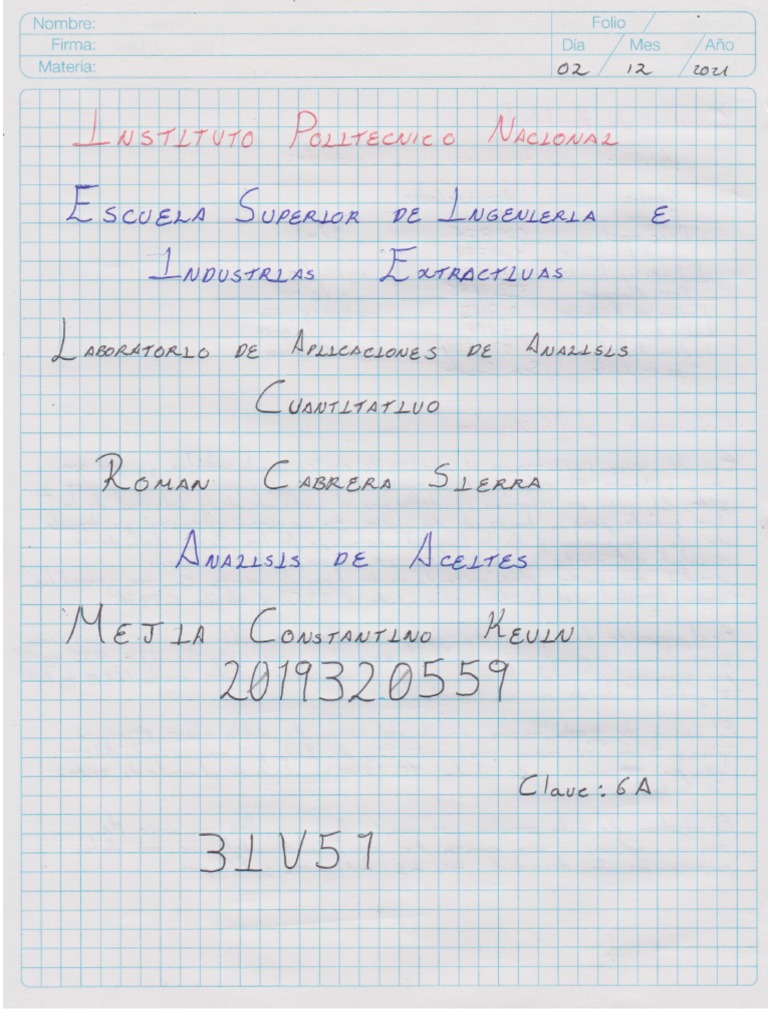 Nombre:
Folio
Firma:
Día Mes Año
Materia:
02 12 2021
INSTITUTO POLITECNICO NACIONAL
ESCUELA SUPERIOR DE INGENIERIA E
INDUSTRIAS EXTRACTIVAS
LABORATORIO DE APLICACIONES DE ANALISIS
CUANTITATIVO
ROMAN CABRERA SIERRA
ANALISIS DE ACEITES
MEJIA CONSTANTINO KEVIN
2019320559
Clave: 6A
3IV51